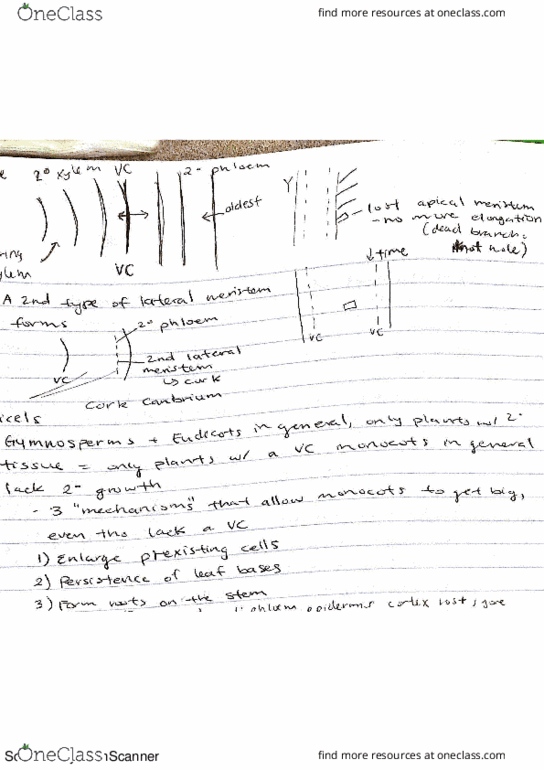 OneClass
find more resources at oneclass.com
2° xylem VC 2° phloem
oldest
Y
lost apical meristem
- no more elongation
(dead branch,
knot hole)
↓ time
VC
A 2nd type of lateral meristem
forms
2° phloem
2nd lateral
meristem
↳ cork
VC
VC VC
Cork Cambrium
icels
Gymnosperms + Eudicots in general, only plants w/ 2°
tissue = only plants w/ a VC monocots in general
lack 2° growth
- 3 "mechanisms" that allow monocots to get big,
even tho lack a VC
1) Enlarge prexisting cells
2) Persistence of leaf bases
3) Form roots on the stem
phloem epidermis cortex lost
OneClass
Scanner
find more resources at oneclass.com